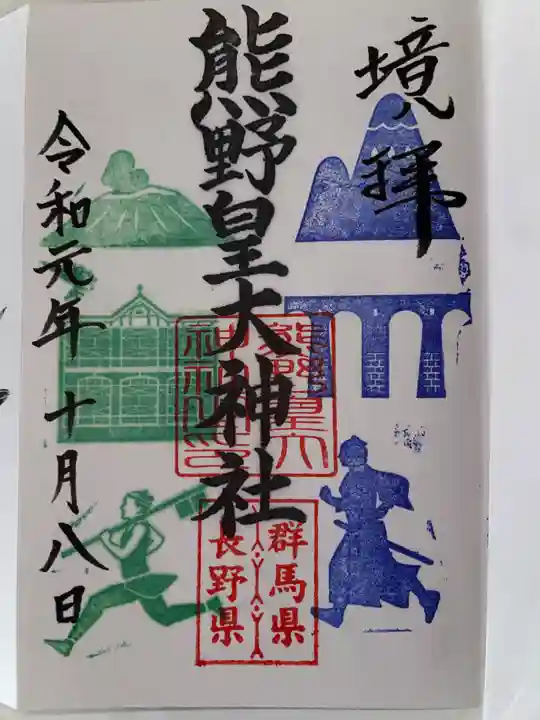 境拝
熊野皇大神社
熊野皇大
神社之印
群馬県
長野県
令和元年 十月八日